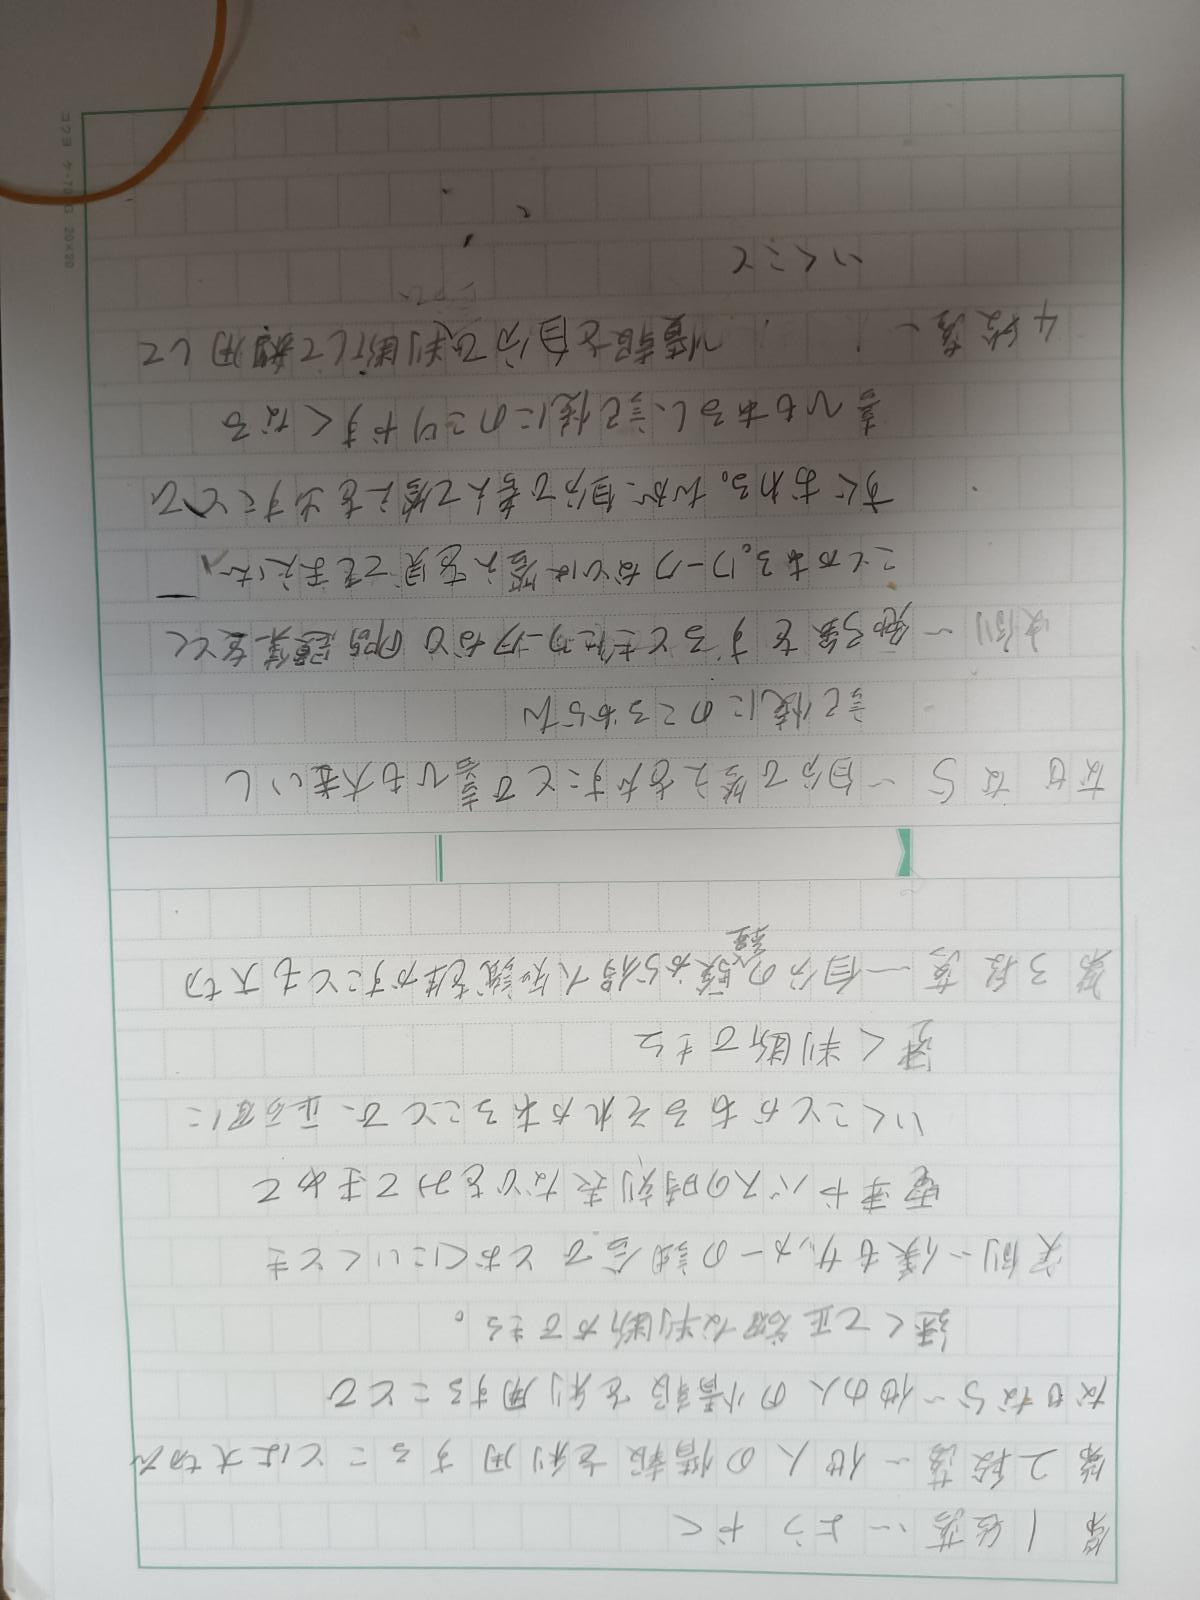 第1段落一ようやく
第2段落一他人の情報を利用することは大切だ
なぜなら一他の人の情報を利用することで
速くて正確な判断ができる。
実例一僕もサッカーの試合でとおくにいくとき
電車やバスの時刻表などをみてきめて
いくことがあるそれがあることで、正確に
速く判断できる
第3段落一自分の経験から得た知識を生かすことも大切
なぜなら一自分で答えを出すことで喜びも大きいし
記憶にのこるからだ
実例一勉強をするときにワークなどの問題集をとく
ことがある。ワークなどは答えを見て
すぐおわる。だが、自分で考えて答えを出すことで
喜びもあるし、記憶にのこりやすくなる
4段落一情報を自分で判断して利用して
いくこと
コクヨ ケ-70 20×20